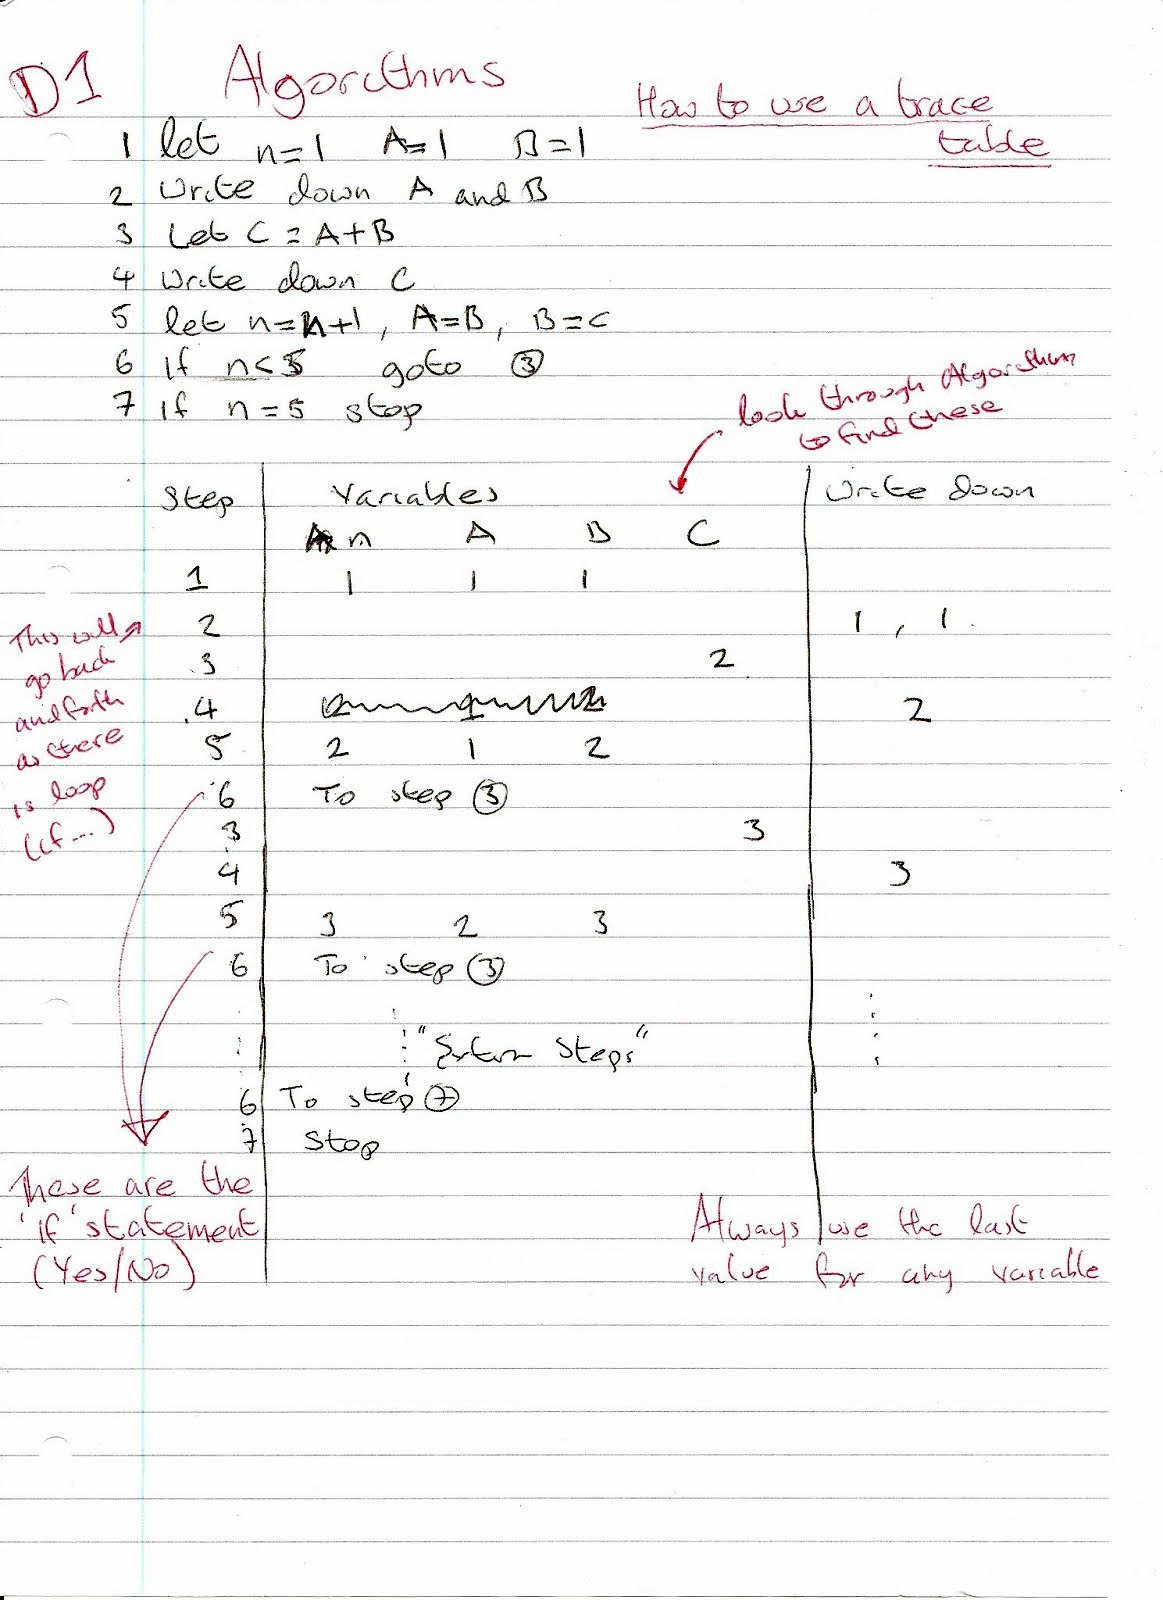 D1 Algorithms
How to use a trace
table
1 let n=1 A=1 B=1
2 Write down A and B
3 Let C = A+B
4 Write down C
5 let n=n+1, A=B, B=C
6 If n<5 goto ③
7 If n=5 stop
look through Algorithm
to find these
Step Variables Write down
n A B C
1 1 1 1
2 1, 1.
3 2
4 2
5 2 1 2
6 To step ③
3 3
4 3
5 3 2 3
6 To step ③
" Steps"
6 To step ⑦
7 Stop
This will
go back
and forth
as there
is loop
(if...)
These are the
'if' statement
(Yes/No)
Always use the last
value for any variable